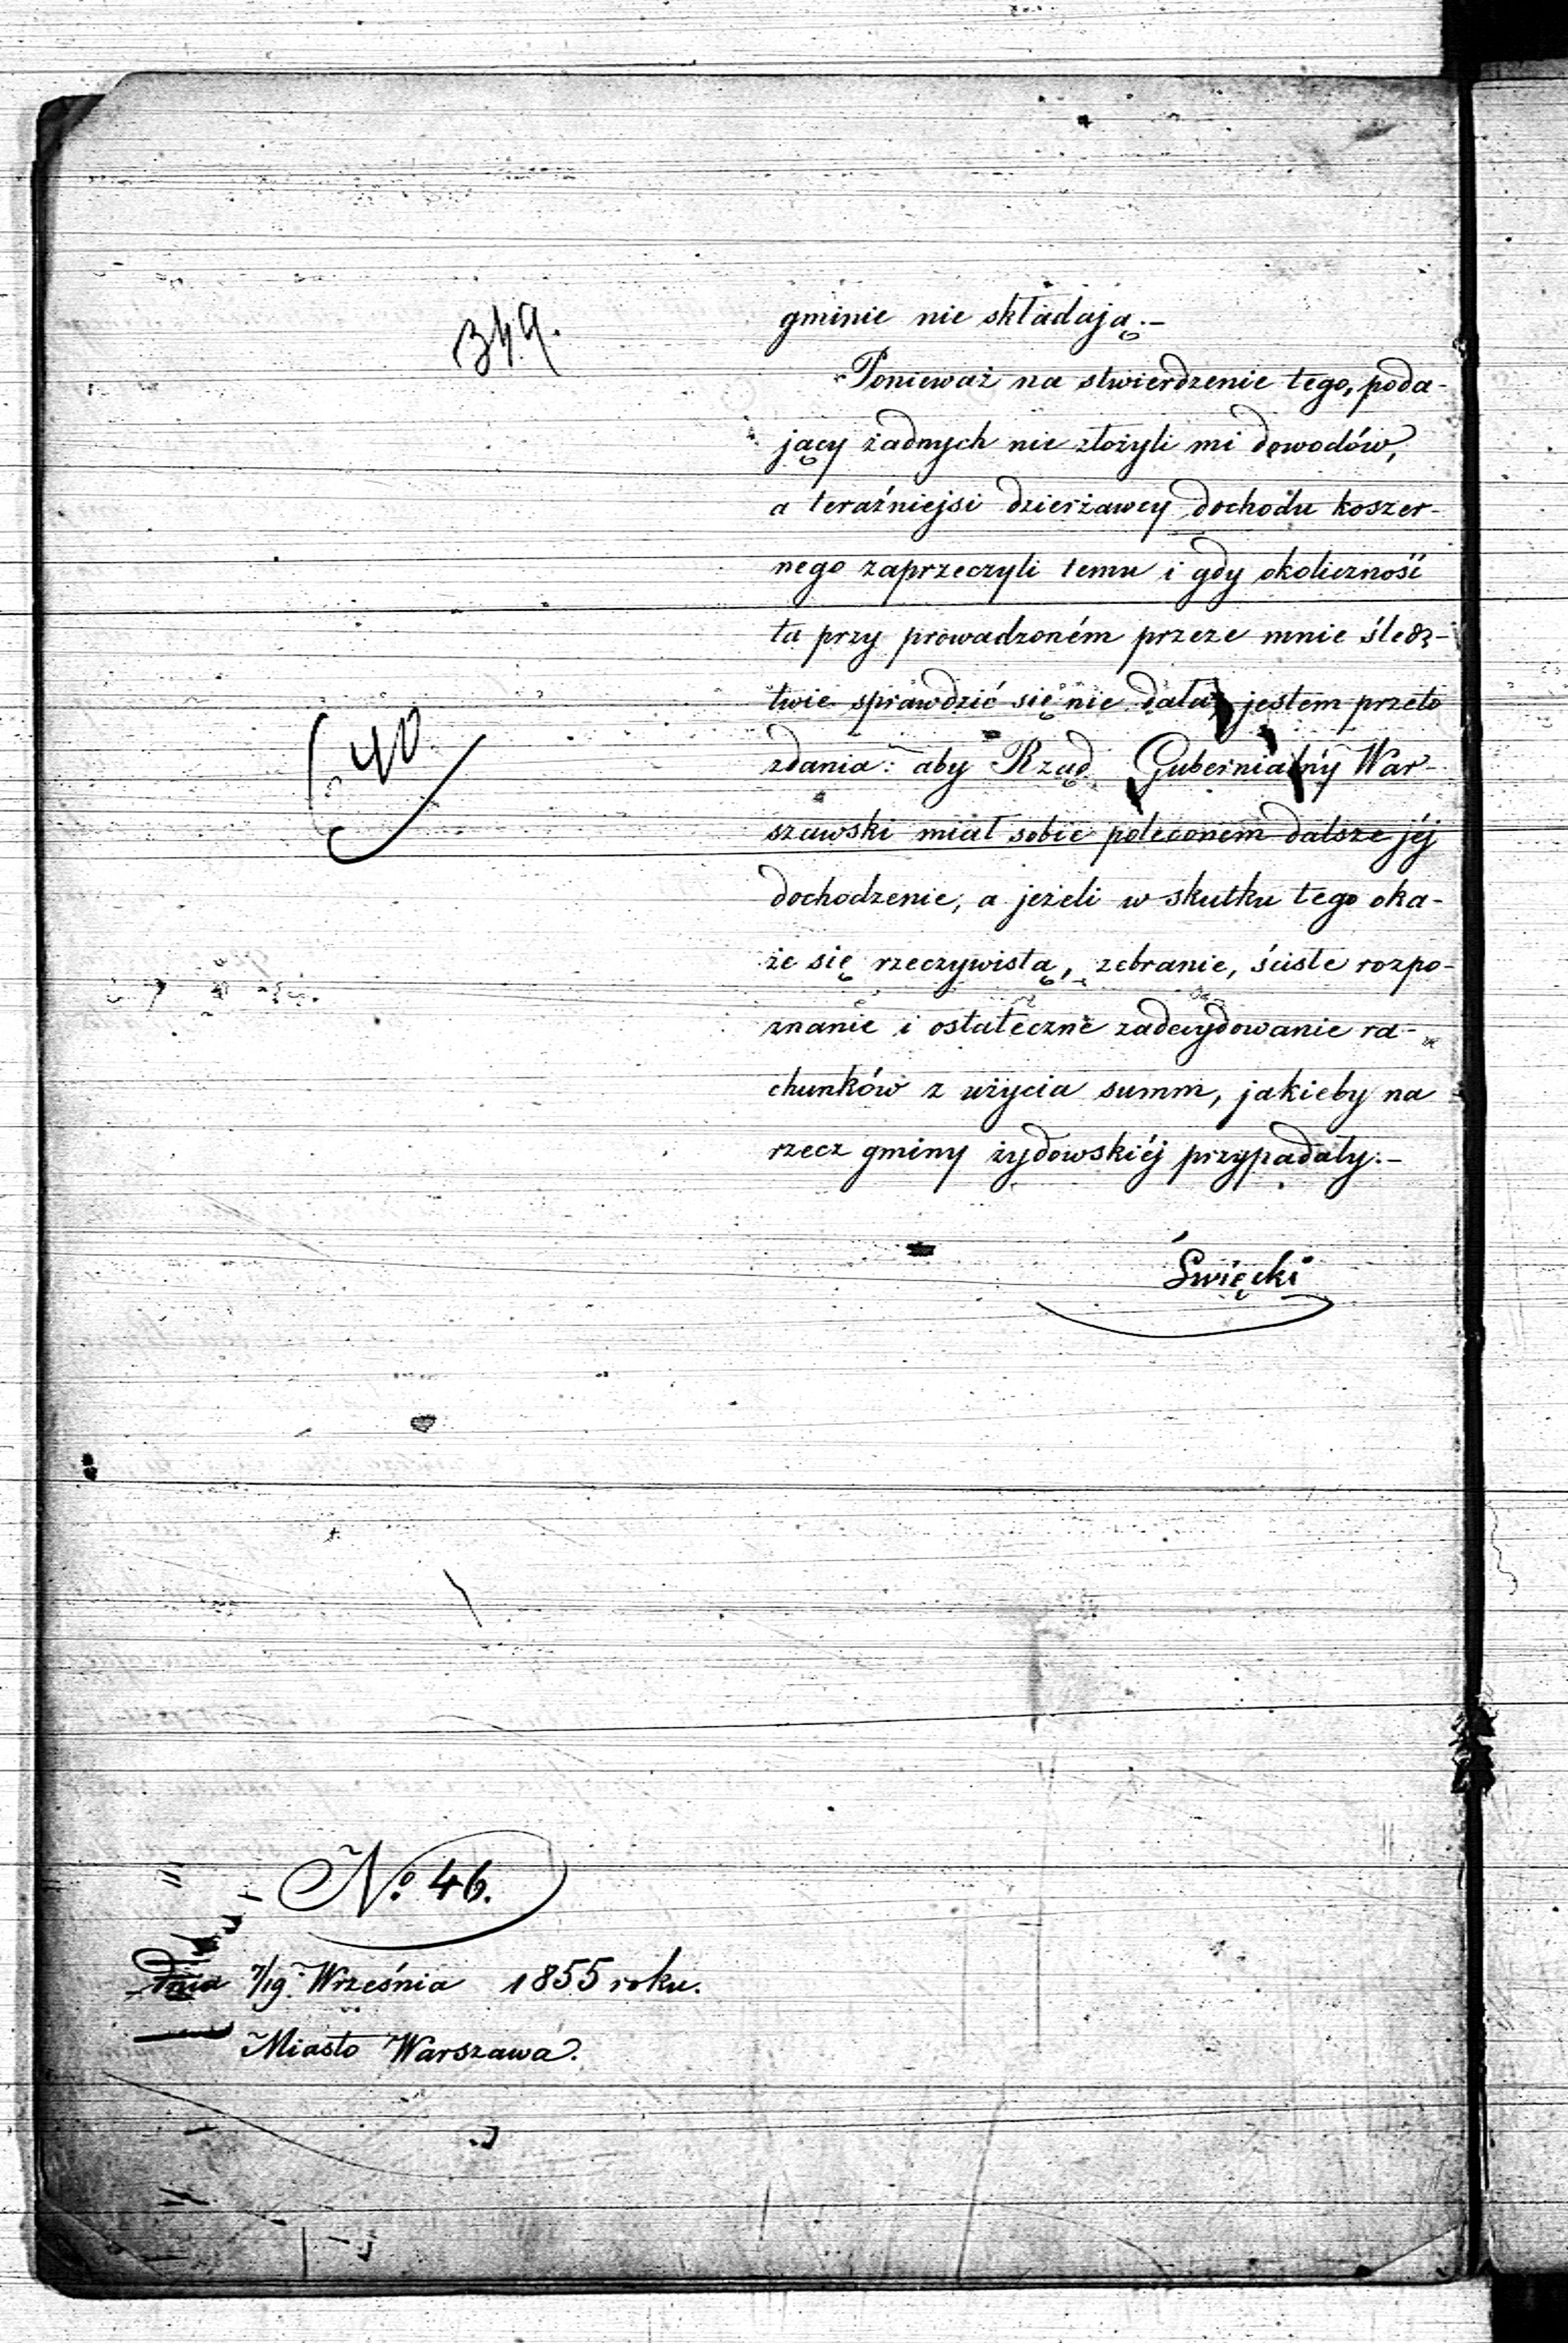 349.
gminie nie składają.-
Ponieważ na stwierdzenie tego, poda-
jący żadnych nie złożyli mi dowodów,
a teraźniejsi dzierżawcy dochodu koszer-
nego zaprzeczyli temu i gdy okoliczność
ta przy prowadzoném przeze mnie śledz-
twie sprawdzić się nie dała, jestem przeto
zdania: aby Rząd Gubernialny War-
szawski miał sobie poleconem dalsze jéj
dochodzenie, a jeżeli w skutku tego oka-
że się rzeczywistą, zebranie, ściste rozpo-
znanie i ostateczne zadecydowanie ra-
chunków z użycia summ, jakieby na
rzecz gminy żydowskiéj przypadały.-
40
Święcki
No. 46.
Dnia 7/19. Września 1855 roku.
Miasto Warszawa.